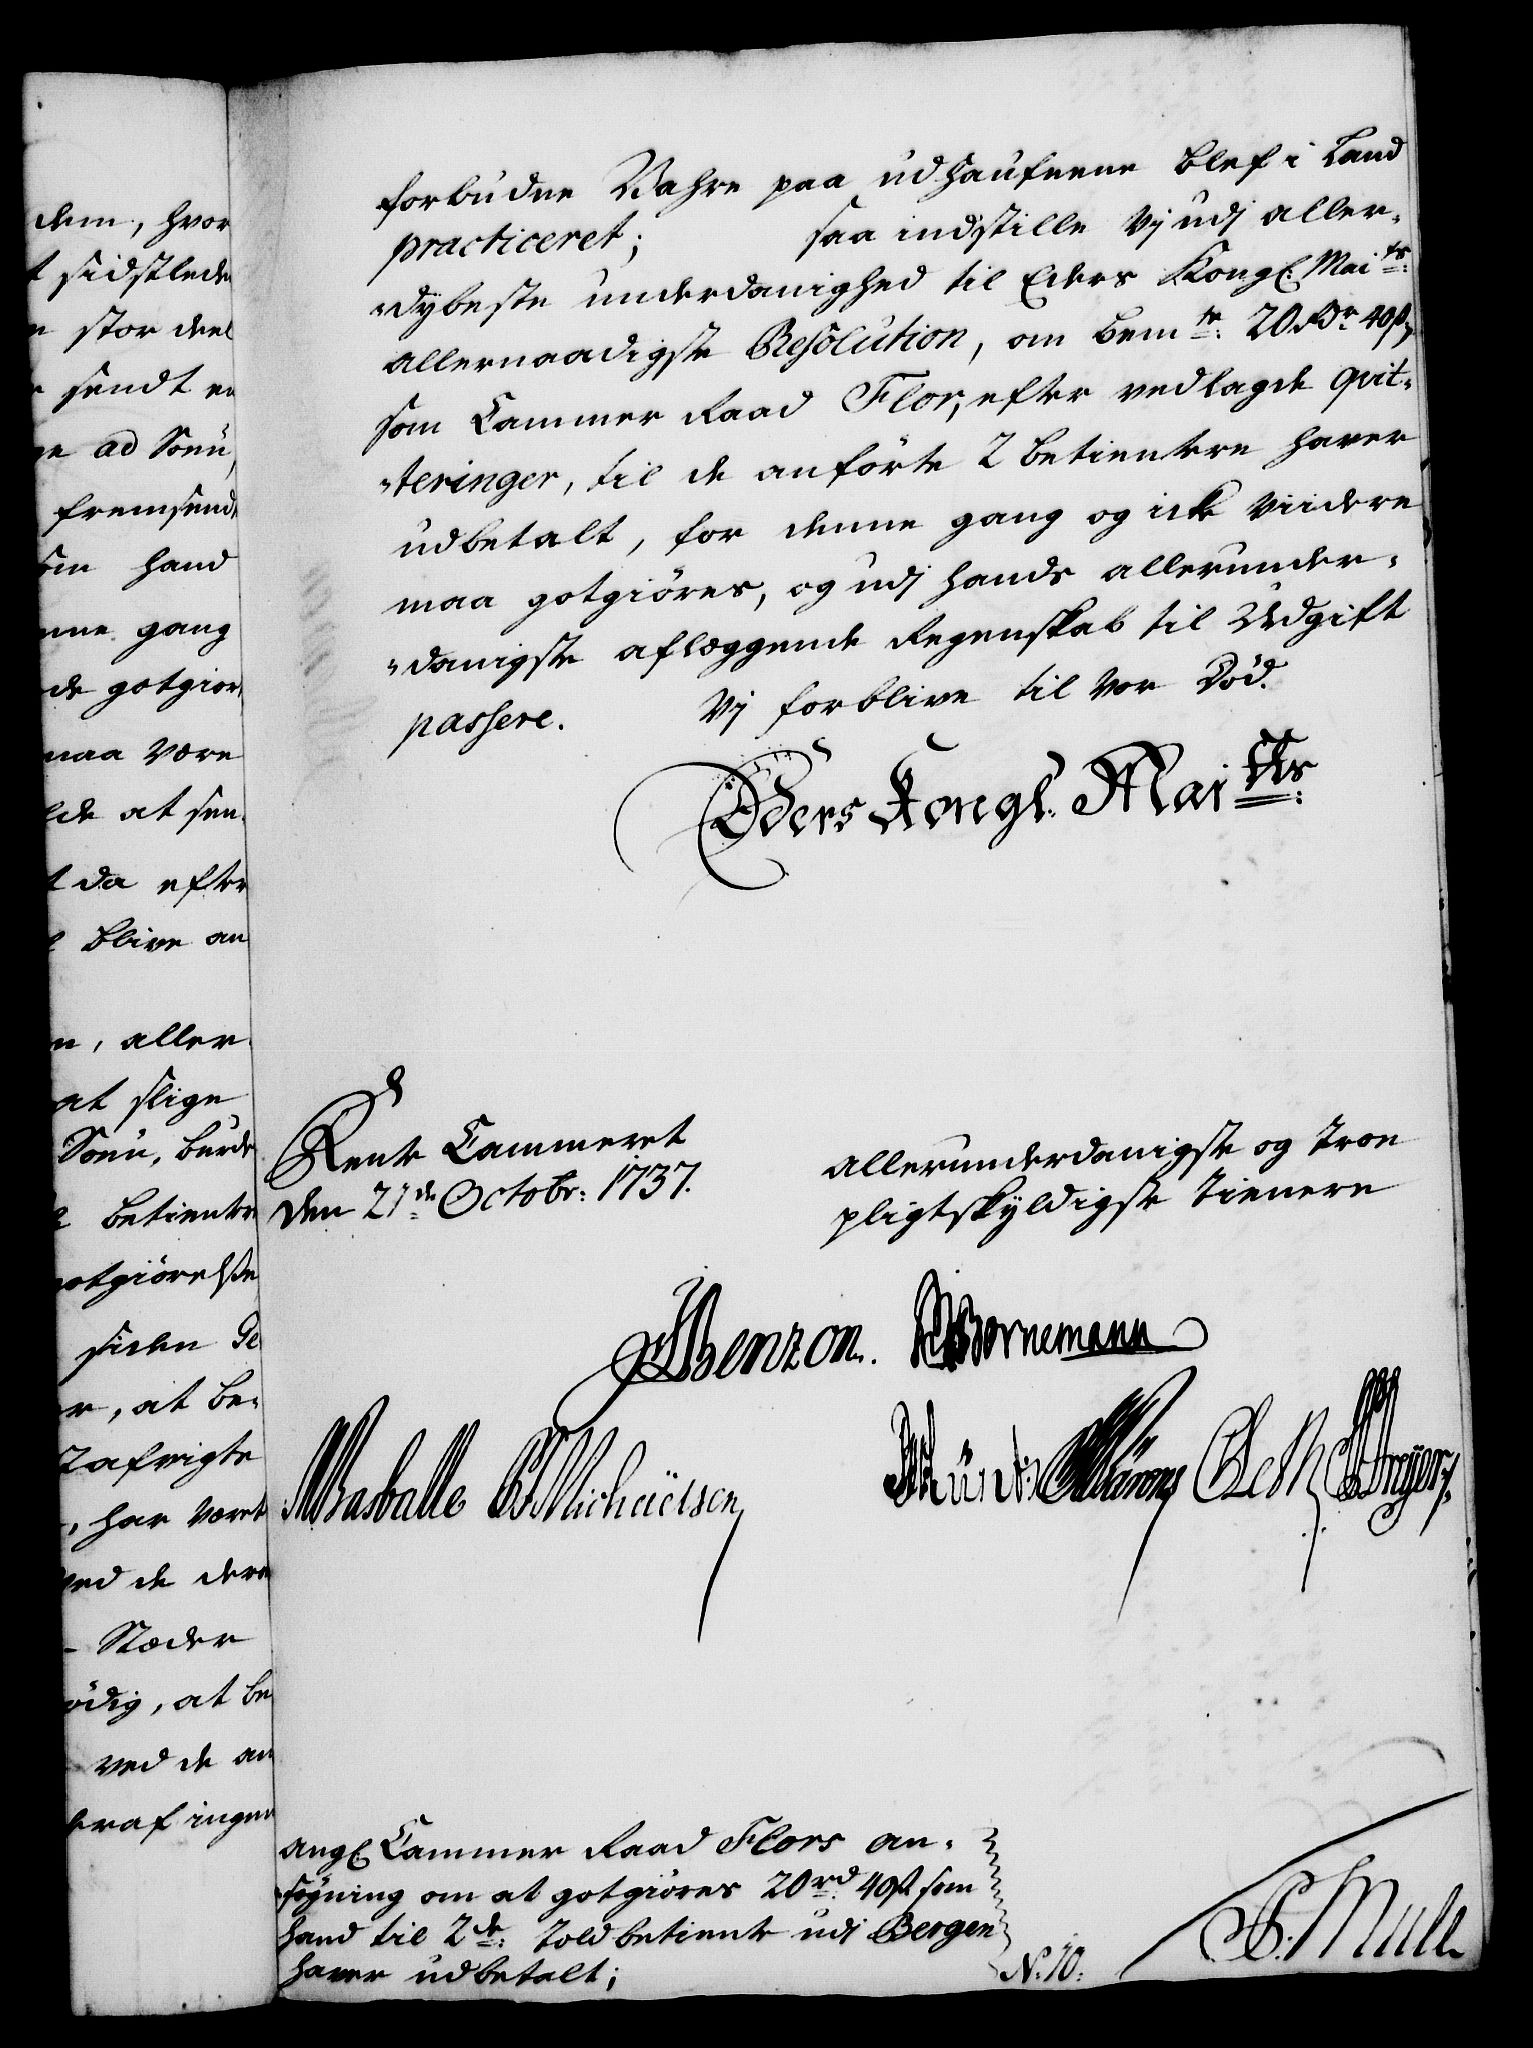 dem, hvor
t sidstleden
n stor deel
r sendt en
ne ad Soun,
fremsendt
som hand
nne gang
de gotgior,
maa være
lde at sen,
t da efter
l blive an
n, aller,
at slige
Soun, burde
e betiente
gotgiörelße
siden De
er, at be,
Tafrigte
, har været
ved de dero
- Stæder
ödig, at be
ved de an
heraf ingen
forbudne Vahre paa udhaufnene blef i Land
practiceret; saa indstille Vj udj aller,
„dybeste underdanighed til Eders Kongl: Maits:
allernaadigste Resolution, om bemte: 20 Rdr 40 s,
som Cammer Raad Flor, efter vedlagde qvit,
„teringer, til de anförte 2 betientere haver
udbetalt, for denne gang og icke viidere
maa gotgiöres, og udj hands allerunder,
„danigste aflæggende Regenskab til Udgift
passere. Vj forblive til vor Död.
Eders Kongl: Maitts:
Rente Cammeret
den 21de Octobr: 1737.
allerunderdanigste og troe
pligtskyldigste tienere
JBenzon. Bornemann
Basballe Michaelsen
angl Cammer Raad Flors an,
søgning om at gotgiöres 20 rd: 40 s som
hand til 2de: Told betiente udi Bergen
haver udbetalt;
N: 10:
Mull